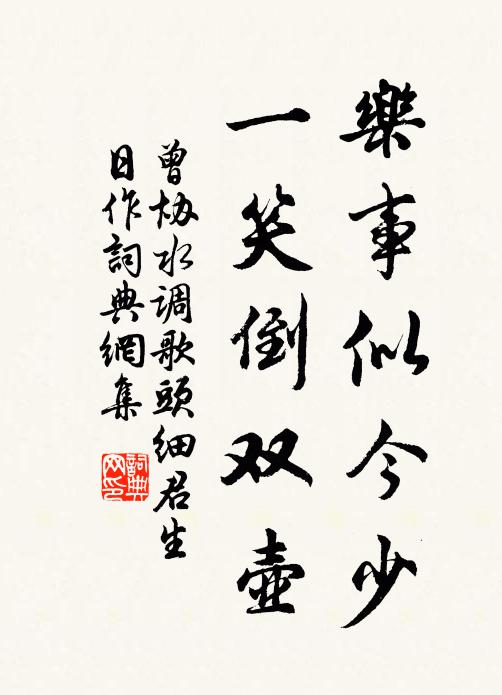 樂事似今少
一笑倒双壺
曾协水调歌頭細君生
日作詞典網集
詞典网印